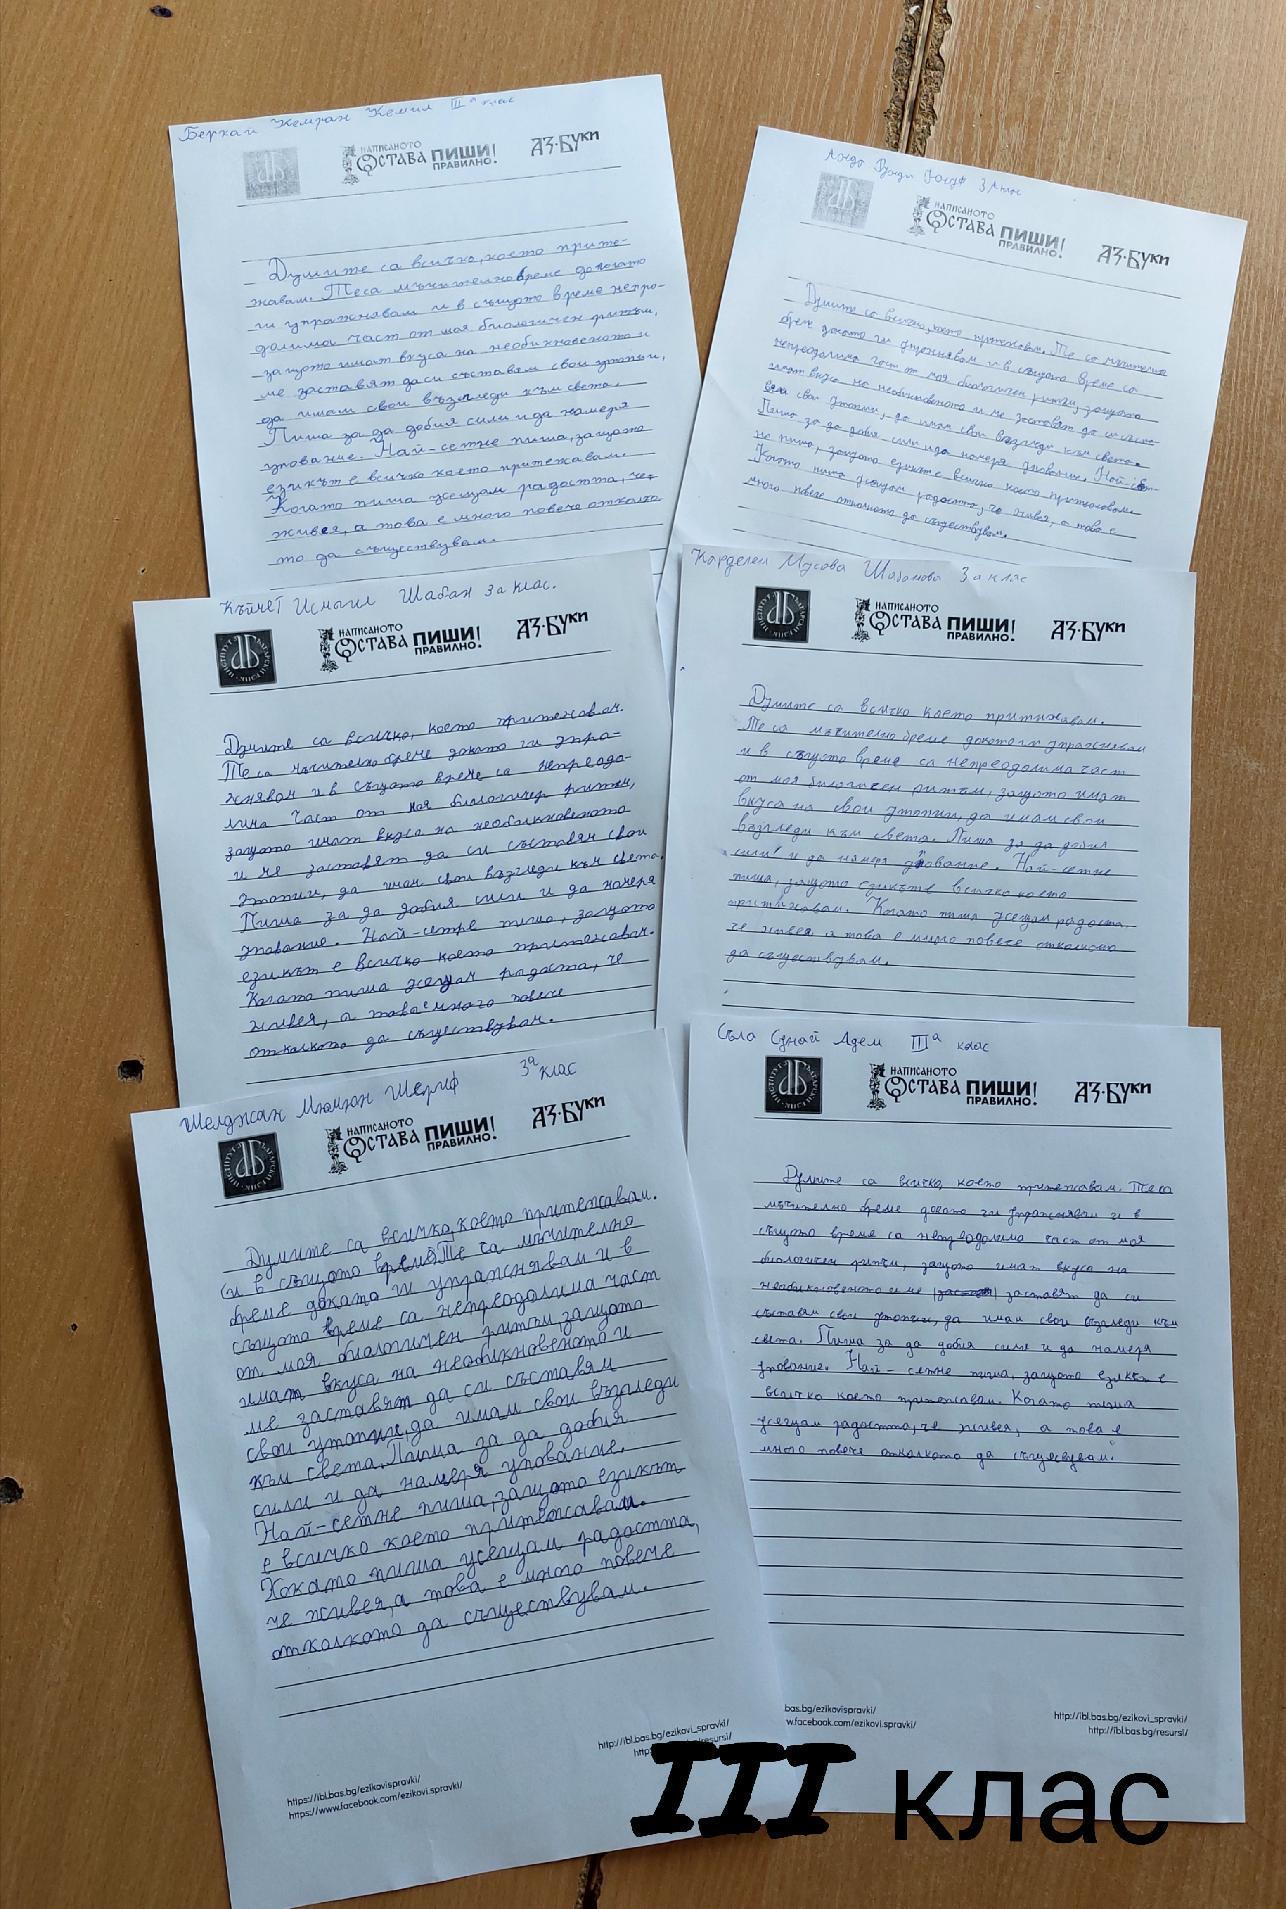 Беркай Кемран Кемил III а клас
НАПИСАНОТО
ОСТАВА ПИШИ
ПРАВИЛНО!
АЗ·БУКИ
Думите са всичко, което прите-
жавам. Теса мъчително време докогато
ги упражнявам и в същото време непро-
долима част от моя биологичен ритъм,
защото имат вкуса на необикновеното и
ме заставят даси съставям свои утопии,
да имам свои възгледи към света.
Пиша за да добия сили и да намеря
упование. Най-сетне пиша, защото
езикът е всичко което притежавам.
Когато пиша усещам радостта, че
живея, а това е много повече отколко
то да съществувам.
3 А клас
НАПИСАНОТО
ОСТАВА ПИШИ
ПРАВИЛНО!
АЗ·БУКИ
Думите са всичко, което притежавам. Те са мъчително
бреме докато ги упражнявам и в същото време са
непреодолима част от моя биологичен ритъм, защото
имат вкуса на необикновеното и ме заставят да си съста
вям свои утопии, да имам свои възгледи към света.
Пиша за да добия сили и да намеря упование. Най-сет-
не пиша, защото езикът е всичко което притежавам.
Когато пиша усещам радостта, че живея, а това е
много повече отколкото да съществувам.
Исмаил Шабан 3а клас.
НАПИСАНОТО
ОСТАВА ПИШИ
ПРАВИЛНО!
АЗ·БУКИ
Думите са всичко, което притежавам.
Те са мъчително бреме докато ги упра-
жнявам и в същото време са непреодо-
лима част от моя биологичен ритъм,
защото имат вкуса на необикновеното
и ме заставят да си съставям свои
утопии, да имам свои възгледи към света.
Пиша за да добия сили и да намеря
упование. Най-сетне пиша, защото
езикът е всичко което притежавам.
Когато пиша усещам радостта, че
живея, а това е много повече
отколкото да съществувам.
Карделен Мусова Шабанова 3а клас
НАПИСАНОТО
ОСТАВА ПИШИ
ПРАВИЛНО!
АЗ·БУКИ
Думите са всичко което притижавам.
Те са мъчително бреме докато ги упражнявам
и в същото време са непреодолима част
от моя биологичен ритъм, защото имат
вкуса на свои утопии, да имам свои
възгледи към света. Пиша за да добия
сили и да намеря упование. Най-сетне
пиша, защото езикът е всичко което
притижавам. Когато пиша усещам радоста,
че живея а това е много повече отколкото
да съществувам.
Шелджан Мюмюн Шериф 3а клас
НАПИСАНОТО
ОСТАВА ПИШИ
ПРАВИЛНО!
АЗ·БУКИ
Думите са всичко, което притежавам.
(и в същото време) Те са мъчително
бреме докато ги упражнявам и в
същото време са непреодолима част
от моя биологичен ритъм, защото
имат вкуса на необикновеното и
ме заставят да си съставям
свои утопии, да имам свои възгледи
към света. Пиша за да добия
сили и да намеря упование.
Най-сетне пиша, защото езикът
е всичко което притежавам.
Кокато пиша усещам радостта,
че живея, а това е много повече
отколкото да съществувам.
https://ibl.bas.bg/ezikovispravki/
https://www.facebook.com/ezikovi.spravki/
http://ibl.bas.bg/ezikovi_spravki/
Съла Сунай Адем III а клас
НАПИСАНОТО
ОСТАВА ПИШИ
ПРАВИЛНО!
АЗ·БУКИ
Думите са всичко, което притежавам. Теса
мъчително бреме докато ги упражнявам и в
същото време са непреодолима част от моя
биологичен ритъм, защото имат вкуса на
необикновеното и ме заставят да си
съставям свои утопии, да имам свои възгледи към
света. Пиша за да добия сили и да намеря
упование. Най-сетне пиша, защото езикът е
всичко което притежавам. Когато пиша
усещам радостта, че живея, а това е
много повече отколкото да съществувам.
bas.bg/ezikovispravki/
w.facebook.com/ezikovi.spravki/
http://ibl.bas.bg/ezikovi_spravki/
http://ibl.bas.bg/resursi/
III клас